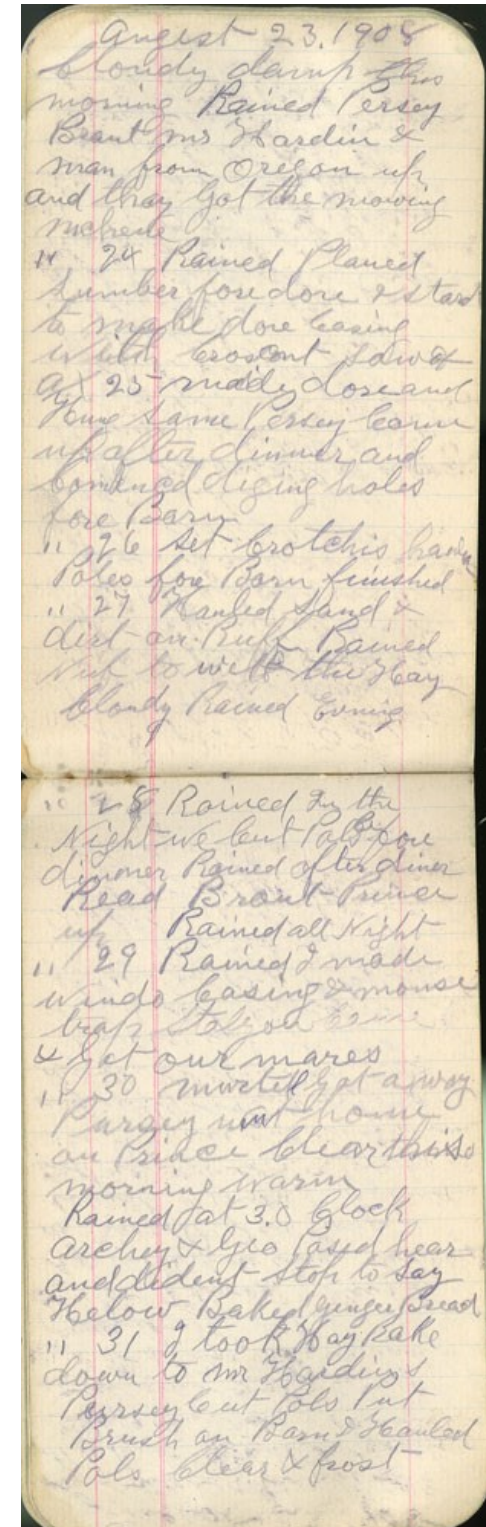 August 23, 1908
Cloudy damp this
morning Rained Persey
Brant mr Hardin &
man from Oregon up
and thay Got the mowing
mchene
" 24 Rained Planed
Lumber fore dore & start
to make dore Casing
with Croscut saw &
ax 25 made dore and
Hung same Persey Came
up after dinner and
Comenced diging holes
fore Barn
" 26 set Crotchis
Poles fore Barn finished
" 27 Hauled sand &
dirt on Rained
to the Hay
Cloudy Rained Evning
" 28 Rained In the
Night we Cut Pols fore
dinner Rained after diner
Read Brant Prince
up Rained all Night
" 29 Rained I made
windo Casing & mouse
trap
& Got our mares
" 30 Got away
went home
on Prince Clear this
morning warm
Rained at 3.0 Clock
Archey & Geo Pased hear
and dident stop to say
Helow Baked ginger Bread
" 31 I took Hay Rake
down to mr Hardings
Persey Cut Pols Put
Brush on Barn & Hauled
Pols Clear & frost